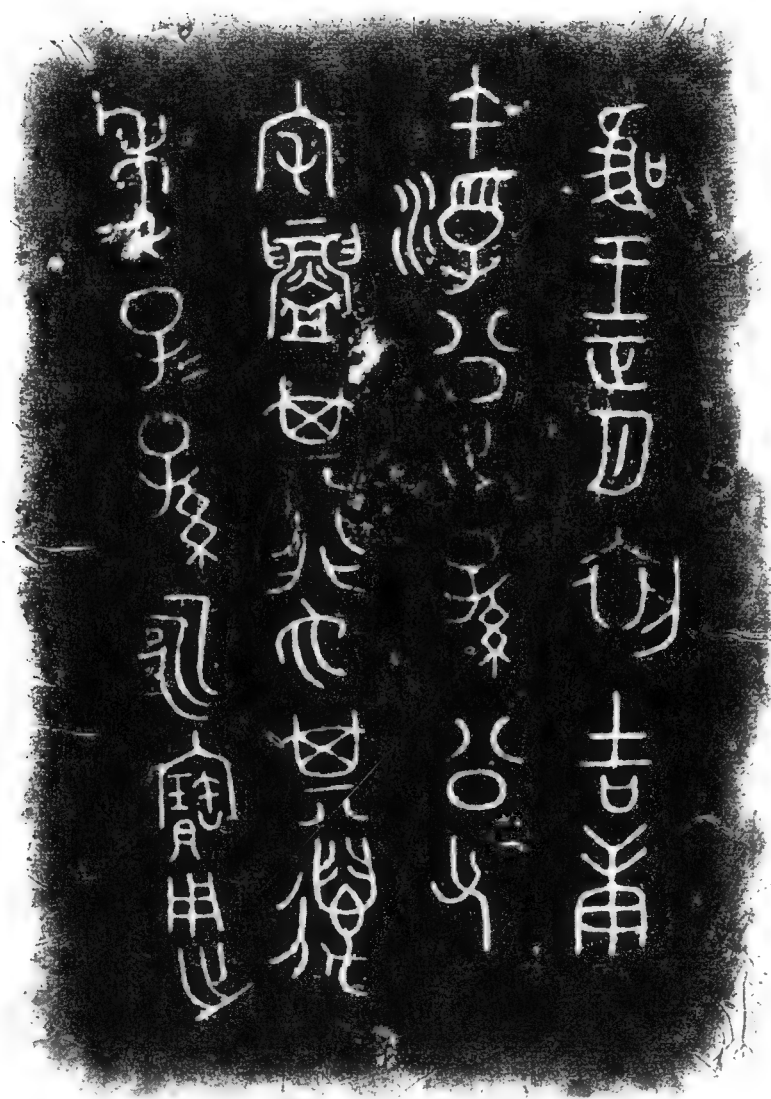 唯王正月初吉庚
午浮公之孫公父
宅鑄其行也其邁
年子子孫永寶用之